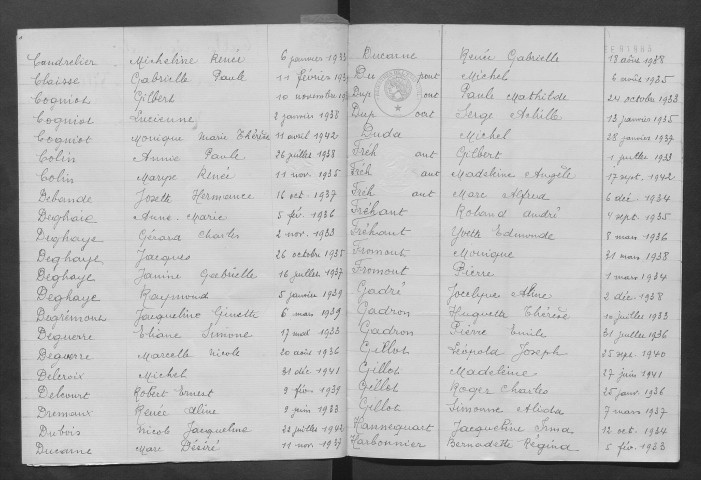 Caudrelier Micheline Renée 6 janvier 1933
Claisse Gabrielle Paule 11 février
Cogniot Gilbert 10 novembre
Cogniot Lucienne 2 janvier 1938
Cogniot Monique Marie Thérèse 11 avril 1942
Colin Annie Paule 26 juillet 1938
Colin Maryse Renée 11 nov. 1935
Debande Josette Hermance 16 oct. 1937
Deghaie Anne-Marie 5 fév. 1936
Deghaye Gérard Charles 2 nov. 1933
Deghaye Jacques 26 octobre 1935
Deghaye Janine Gabrielle 16 juillet 1937
Deghaye Raymond 5 janvier 1939
Degrémont Jacqueline Ginette 6 mars 1939
Deguerre Eliane Simone 17 mai 1933
Deguerre Marcelle Nicole 20 août 1936
Delcroix Michel 31 déc 1941
Delcourt Robert Ernest 9 fév. 1939
Dremaux Renée Aline 9 juin 1933
Dubois Nicole Jacqueline 22 juillet 1942
Ducarne Marc Désiré 11 nov. 1937
Ducarne Renée Gabrielle 18 août 1938
Dupont Michel 6 août 1935
Dupont Paule Mathilde 24 octobre 1933
Dupont Serge Achille 13 janvier 1935
Duda Michel 28 janvier 1937
Fréhaut Gilbert 1 juillet 1933
Fréhaut Madeleine Angèle 17 sept. 1942
Fréhaut Marc Alfred 6 déc 1934
Fréhaut Roland André 4 sept. 1935
Fréhaut Yvette Edmonde 8 mars 1936
Fromont Monique 31 mars 1938
Fromont Pierre 1 mars 1934
Gadré Jocelyne Aline 2 déc. 1938
Gadron Huguette Thérèse 10 juillet 1933
Gadron Pierre Emile 31 juillet 1936
Gillot Léopold Joseph 25 sept. 1940
Gillot Madeleine 27 juin 1941
Gillot Roger Charles 25 janv. 1936
Gillot Simonne Alida 7 mars 1937
Hannequart Jacqueline Irma 12 oct. 1934
Harbonnier Bernadette Régina 5 fév. 1933